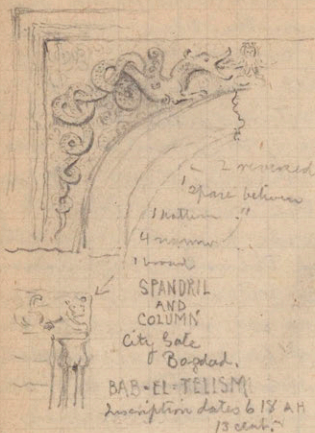 2 reversed
space between
1 pattern
4 narrow
1 broad
SPANDRIL
AND
COLUMN
City Gate
of Bagdad.
BAB-EL-TELISM
Inscription dates 618 AH
13 cent.